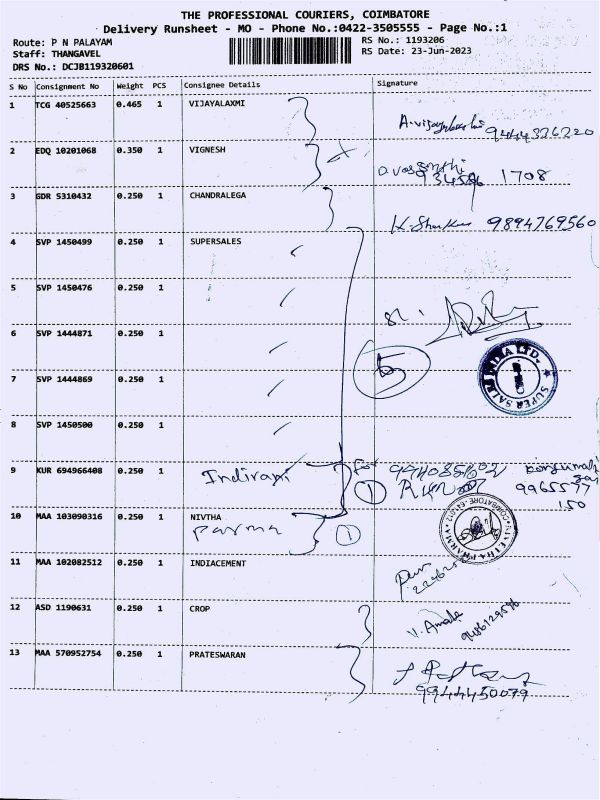 THE PROFESSIONAL COURIERS, COIMBATORE
Delivery Runsheet - MO - Phone No.:0422-3505555 - Page No.:1
Route: P N PALAYAM
RS No.: 1193206
Staff: THANGAVEL
RS Date: 23-Jun-2023
DRS No.: DCJB119320601
S No Consignment No Weight PCS Consignee Details Signature
1 TCG 40525663 0.465 1 VIJAYALAXMI
9444336220
2 EDQ 10201068 0.350 1 VIGNESH
1708
3 GDR 5310432 0.250 1 CHANDRALEGA
9894769560
4 SVP 1450499 0.250 1 SUPERSALES
5 SVP 1450476 0.250 1
6 SVP 1444871 0.250 1
SUPER SALES INDIA LTD.
7 SVP 1444869 0.250 1 5
8 SVP 1450500 0.250 1
9 KUR 694966408 0.250 1 Indirani for
1
10 MAA 103090316 0.250 1 NIVTHA
parma 1
11 MAA 102082512 0.250 1 INDIACEMENT
12 ASD 1190631 0.250 1 CROP
V. Amala
9486129596
13 MAA 570952754 0.250 1 PRATESWARAN
9944450079